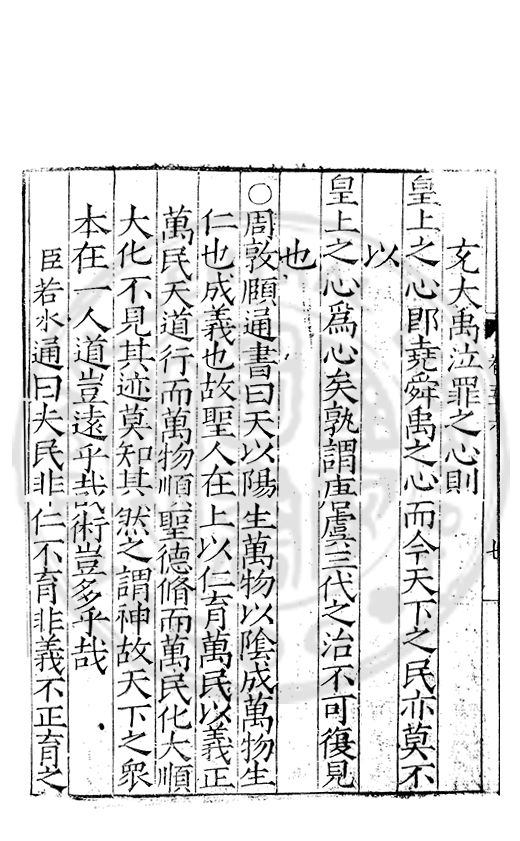 充大禹泣罪之心則
皇上之心即堯舜禹之心而今天下之民亦莫不
以
皇上之心爲心矣孰謂唐虞三代之治不可復見
也
○周敦頥通書曰天以陽生萬物以陰成萬物生
仁也成義也故聖人在上以仁育萬民以義正
萬民天道行而萬物順聖德脩而萬民化大順
大化不見其迹莫知其然之謂神故天下之衆
本在一人道豈遠乎哉術豈多乎哉
臣若水通曰夫民非仁不育非義不正育之